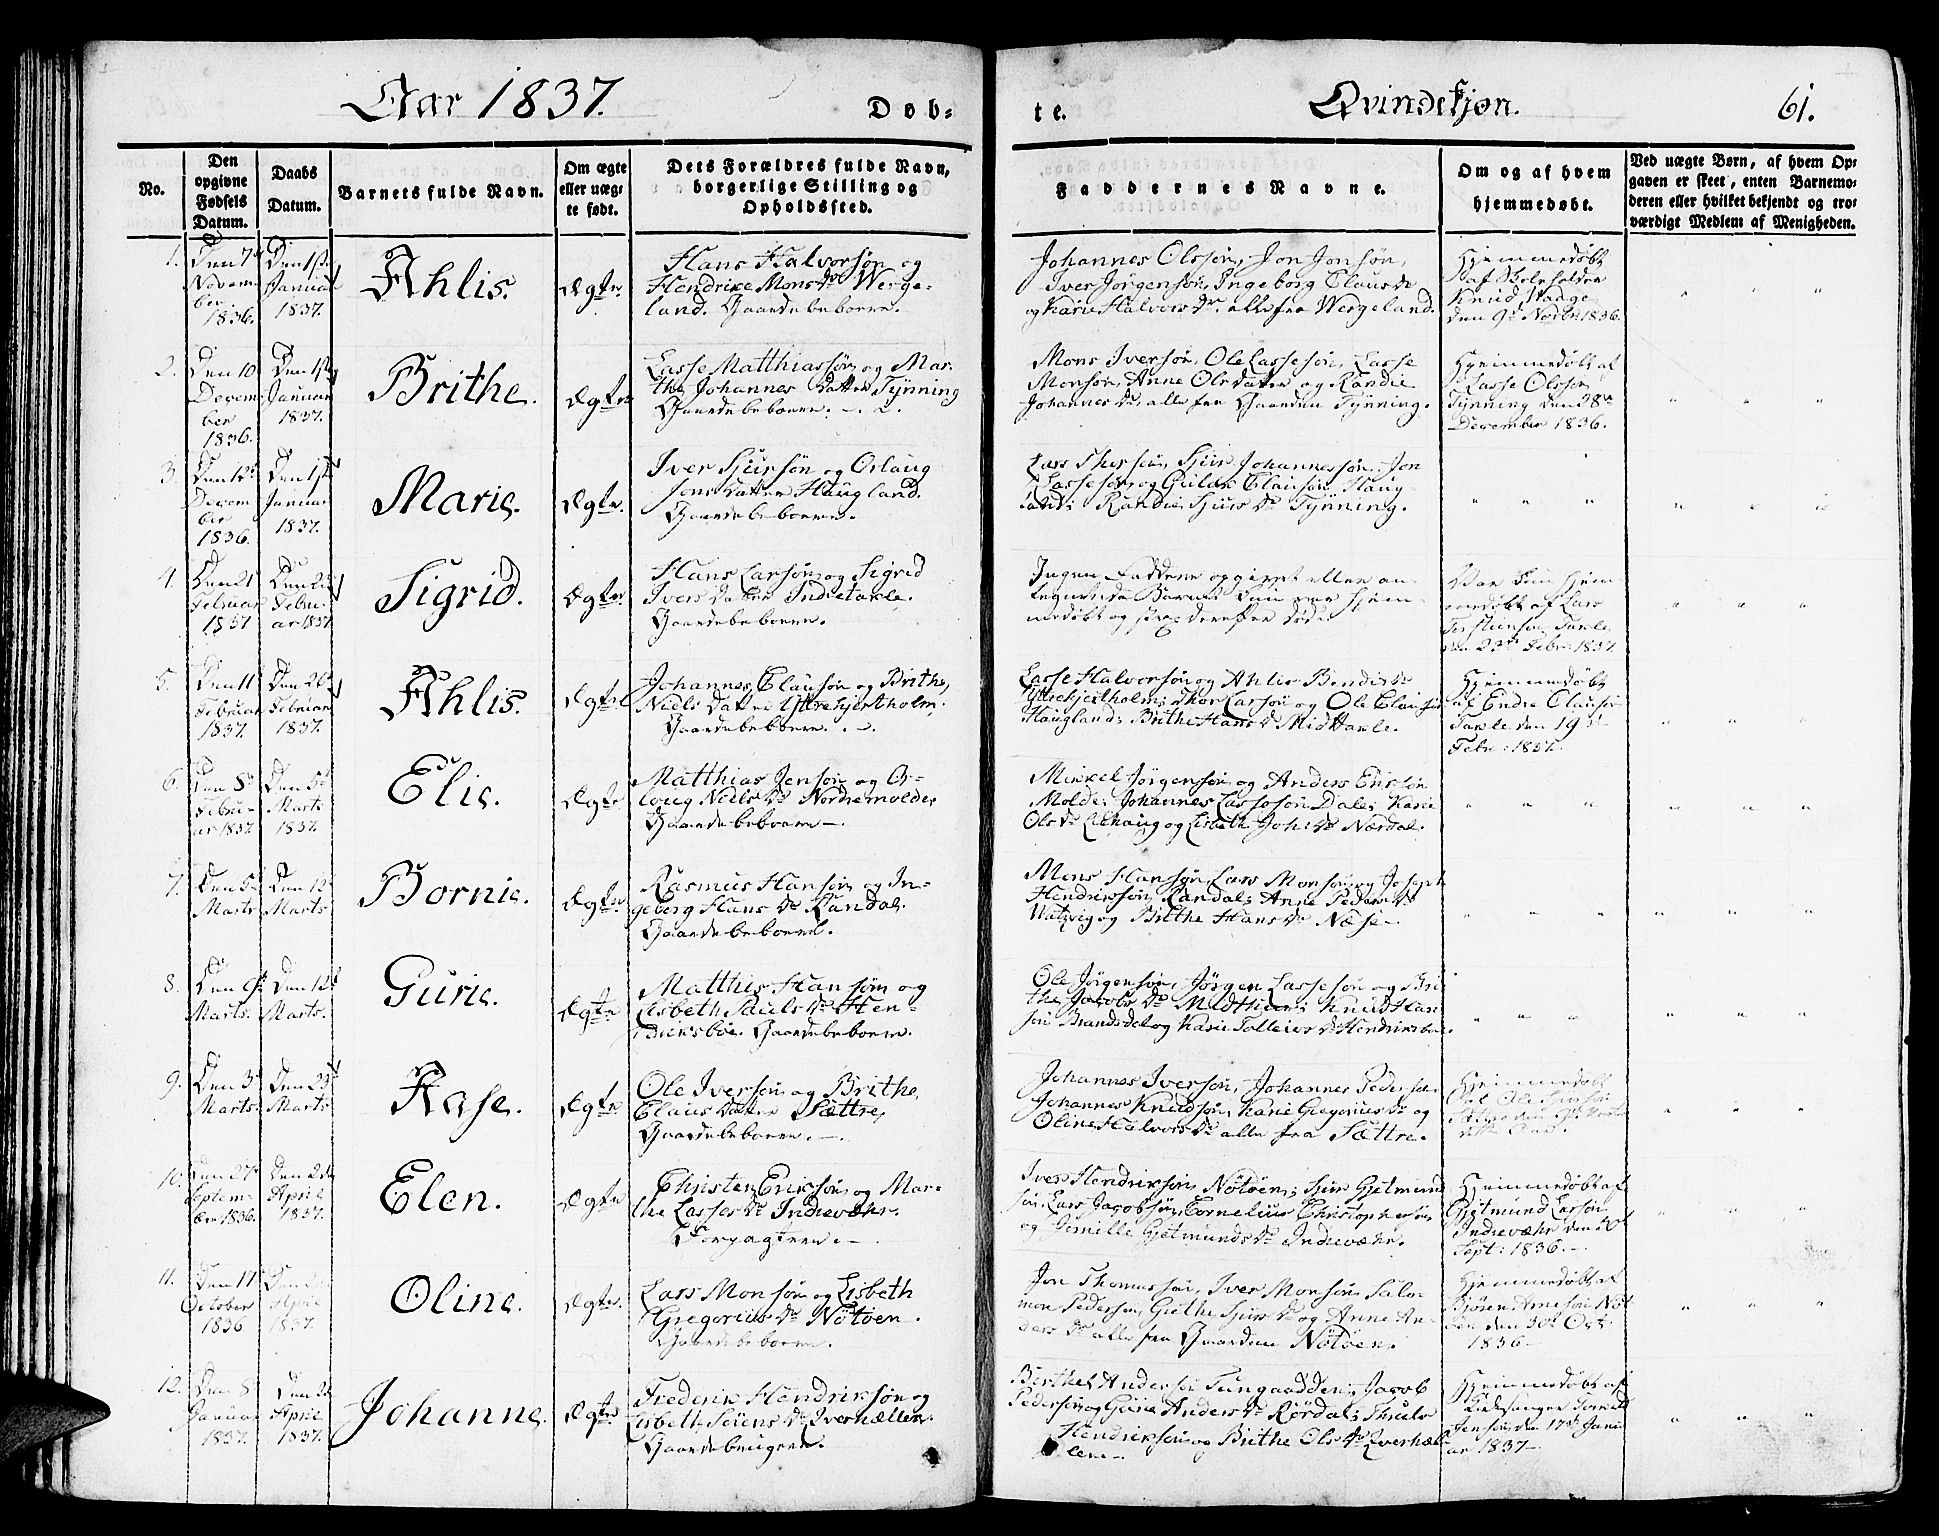 Aar 1837.
Døb=
te.
Qvindekjøn.
61.
No.
Den
opgivne
Fødsels
Datum.
Daabs
Datum.
Barnets fulde Navn.
Om ægte
eller uæg=
te født.
Dets Forældres fulde Navn,
borgerlige Stilling og
Opholdssted.
Faddernes Navne.
Om og af hvem
hjemmedøbt.
Ved uægte Børn, af hvem Op=
gaven er skeet, enten Barnemo=
deren eller hvilket bekjendt og tro=
værdigt Medlem af Menigheden.
1.
Den 7de
Novem
ber
1836.
Den 1ste
Januar
1837.
Ahlis.
Ægte.
Hans Halvorsøn og
Hendrike Mons Dr Werge=
land. Gaardebeboere.
Johannes Olssøn, Jon Jonsøn,
Iver Jørgensøn, Ingeborg Claus Dr
og Karie Halvors Dr. alle fra Wergeland.
Hjemmedøbt
af Skoleholder
Knud Vange
den 9de Novbr. 1836.
2.
Den 10
Decem
ber
1836.
Den 1ste
Januar
1837.
Brithe.
Ægte
Lasse Matthiassøn og Mar=
the Johannes Datter Tÿnning
Gaardebeboere.
Mons Iversøn, Ole Lassesøn, Lasse
Monsøn, Anne Olsdatter og Randie
Johannes Dr, alle fra Gaarden Tÿnning.
Hjemmedøbt af
Lasse Olssøn
Tÿnning den 28de
December 1836.
3.
Den 12te
Decem
ber
1836.
Den 1ste
Januar
1837.
Marie.
Ægte.
Iver Sjursøn og Orlaug
Jons Datter Haugland.
Gaardebeboere.
Lars Sjur Johannessøn, Jon
Lassesøn og Claussøn Haug=
land; Randie Sjurs Dr Tÿnning.
4.
Den 21
Februar
1837
Den
Febru=
ar 1837
Sigrid.
Ægte.
Hans Larsøn og Sigrid
Ivers Datter Indretakle.
Gaardebeboere.
Ingen Faddere opgivet eller an=
tegnet, da Barnet kun var hjem=
medøbt og strax derefter døde.
Var kun hjem=
medøbt af Lars
Takle,
den 23de Febr: 1837.
5.
Den 11te
Februar
1837.
Den 26de
Februar
1837.
Ahlis.
Ægte.
Johannes Claussøn og Brithe,
Niels Datter Ÿttrehjertholm.
Gaardebeboere.
Lasse Halvorsøn og Ahlis Bendix Dr
Ÿttrehjertholm; Thor Larsøn og Ole Claussøn
Haugland; Brithe Hans Dr Midttakle.
Hjemmedøbt
af Endre Claussøn
Takle den 19de
Febr: 1837.
6.
Den 8de
Febru=
ar 1837.
Den 5te
Marts
1837.
Elie.
Ægte
Matthias Jensøn og Or=
loug Niels Dr Nordremolde,
Gaardebeboere.
Mikkel Jørgensøn og Anders Eriksøn
Molde; Johannes Lassesøn Dale; Karie
Ols Dr Liehaug og Lisbeth Joh: Dr Nærdal.
7.
Den 5te
Marts
Den 12te
Marts
Bornie.
Ægte
Rasmus Hansøn og In=
geberg Hans Dr Randal.
Gaardebeboere.
Mons Hansøn, Lars Monsøn og Joseph
Hendriksøn, Randal; Anne Peders Dr
Watzvig og Brithe Hans Dr Næse
8.
Den
Marts.
Den 12te
Marts.
Gurie.
Ægte
Matthis Hansøn og
Lisbeth Pauls Dr Hen=
driksbøe. Gaardebeboere.
Ole Jørgensøn, Jørgen Lassesøn og Bri
the Jacobs Dr Midthun; Knud Han
søn Brandsdal og Karie Tolleivs Dr Hendriksboe.
9.
Den 3de
Marts.
Den 23de
Marts.
Aase.
Ægte
Ole Iversøn og Brithe,
Claus Datter Sættre,
Gaardebeboere.
Johannes Iversøn, Johannes Pedersøn
Johannes Knudsøn, Karie Gregorius Dr og
Oline Halvors Dr alle fra Sættre.
Hjemmedøbt
Ole
9de Marts
dette Aar.
10.
Den 27de
Septem=
ber 1836.
Den 2den
April
1837.
Elen.
Ægte
Christen Eriksøn og Mar=
the Lasses Dr Indrevæhr.
Forpagtere.
Iver Hendriksøn, Nötöen; Sjur Gjetmund
søn, Lars Jacobsøn, Cornelius Christophersøn
og Jemille Gjetmunds Dr Indrevæhr.
Hjemmedøbt af
Gjetmund Larsøn
Indrevæhr den 30te
Sept: 1836.
11.
Den 17de
October
1836
Den
April
1837.
Oline.
Ægte.
Lars Monsøn og Lisbeth
Gregorius Dr Nötöen.
Gaardebeboere.
Jon Thomassøn, Iver Monsøn, Salo=
mon Pedersøn, Giethe Sjurs Dr og Anne An=
ders Dr alle fra Gaarden Nötöen.
Hjemmedøbt af
Arnesøn Nöt
öen den 30te Oct.
1836
12.
Den 8de
Januar
1837.
Den
April
1837.
Johanne.
Ægte
Frederik Hendriksøn og
Lisbeth Sörens Dr Qverhællen.
Gaardbrugere.
Berthel Andersøn Tungaadden; Jacob
Pedersøn og Gurie Anders Dr Rørdal; Thrule
Hendriksøn og Brithe Ols Dr Qverhæl=
lene
Hjemmedøbt af
Kirkesanger
Jensøn den 17de Janu
ar 1837